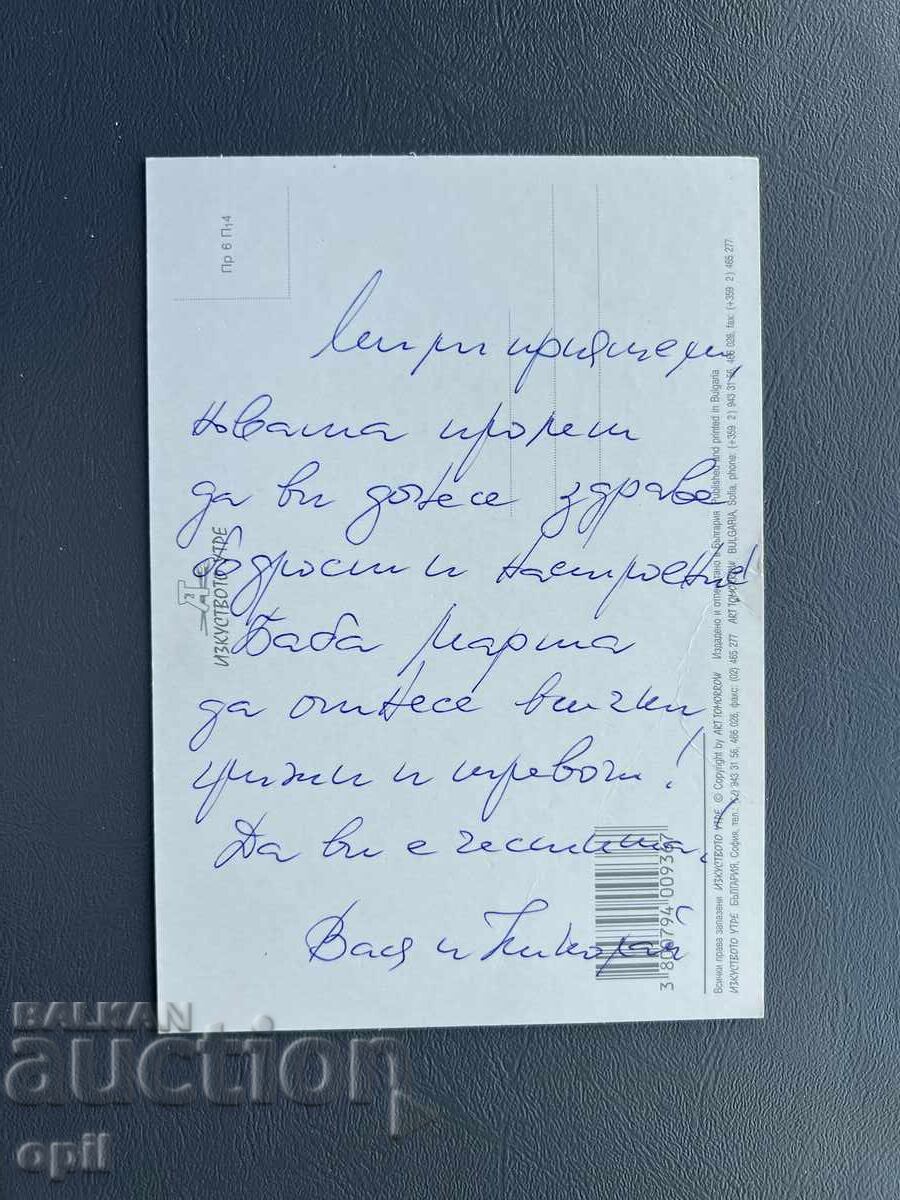 Пр 6 П₁4
Мили приятели,
новата пролет
да ви донесе здраве
бодрост и настроение!
Баба Марта
да отнесе всички
грижи и тревоги!
Да ви е честита,
Вася и Николай
ИЗКУСТВОТО УТРЕ
Всички права запазени ИЗКУСТВОТО УТРЕ © Copyright by ART TOMORROW Издадено и отпечатано в България Published and printed in Bulgaria
ИЗКУСТВОТО УТРЕ БЪЛГАРИЯ, София, тел.: (02) 943 31 56, 466 028, факс: (02) 465 277 ART TOMORROW BULGARIA, Sofia, phone: (+359 2) 943 31 56, 466 028, fax: (+359 2) 465 277
3 800794 009367
BALKAN
auction
opil